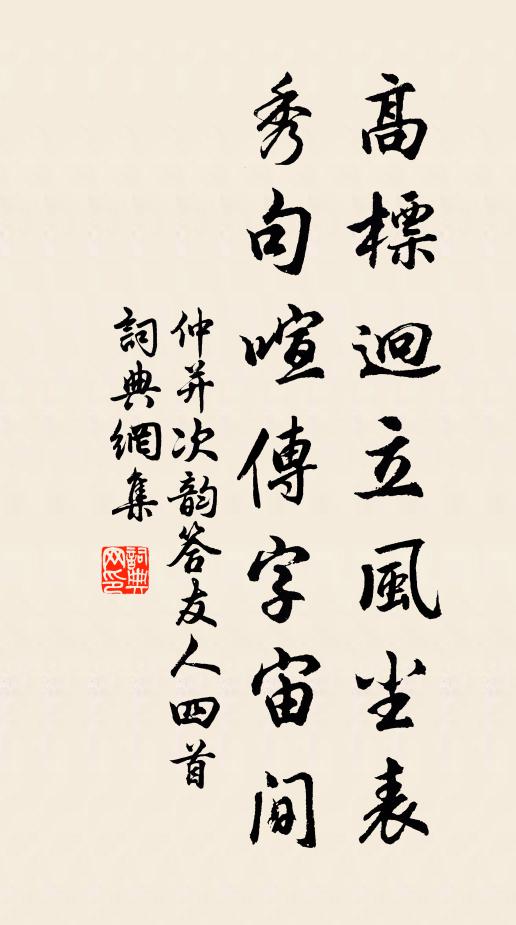 高標逈立風尘表
秀句喧傳字宙間
仲并次韵答友人四首
詞典網集
詞典网印